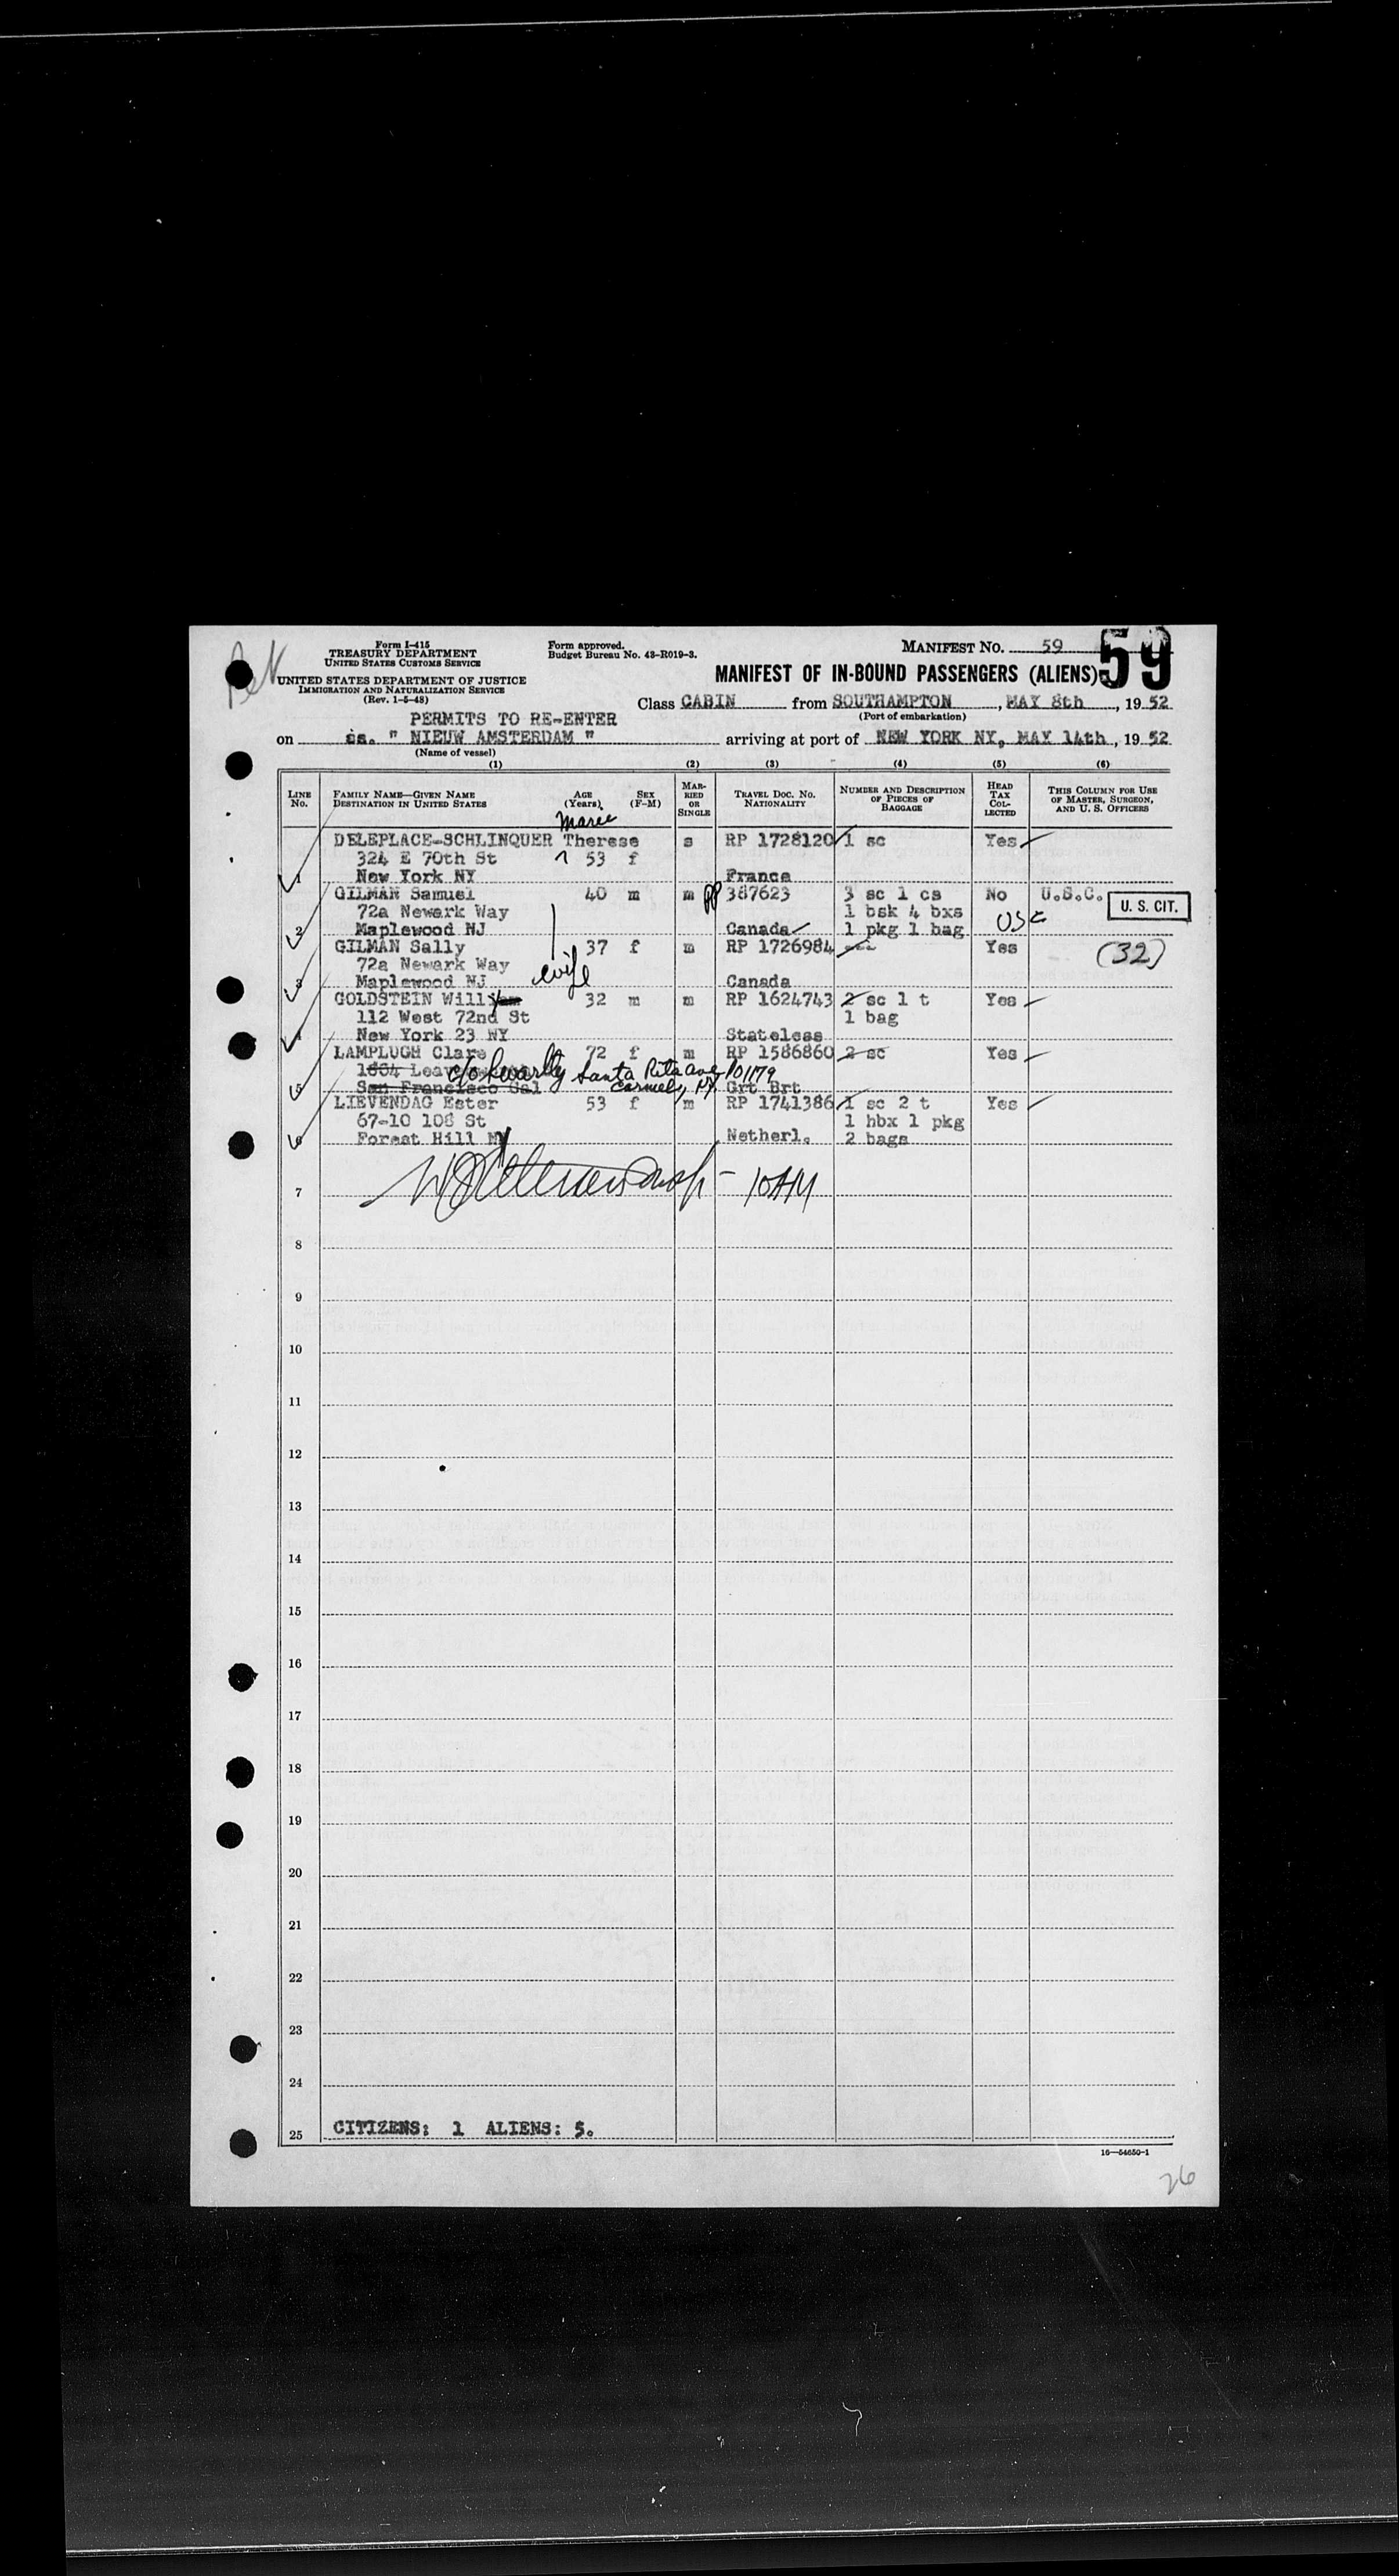 Form I-415
TREASURY DEPARTMENT
UNITED STATES CUSTOMS SERVICE
UNITED STATES DEPARTMENT OF JUSTICE
IMMIGRATION AND NATURALIZATION SERVICE
(Rev. 1-5-48)
Form approved.
Budget Bureau No. 43-R019-3.
MANIFEST NO. 59
59
MANIFEST OF IN-BOUND PASSENGERS (ALIENS)
Class CABIN from SOUTHAMPTON, MAY 8th, 1952
(Port of embarkation)
PERMITS TO RE-ENTER
on ss. " NIEUW AMSTERDAM " arriving at port of NEW YORK NY, MAY 14th, 1952
(Name of vessel)
(1) (2) (3) (4) (5) (6)
LINE No.
FAMILY NAME—GIVEN NAME
DESTINATION IN UNITED STATES
AGE (Years)
SEX (F-M)
MARRIED OR SINGLE
TRAVEL DOC. NO. NATIONALITY
NUMBER AND DESCRIPTION OF PIECES OF BAGGAGE
HEAD TAX COLLECTED
THIS COLUMN FOR USE OF MASTER, SURGEON, AND U. S. OFFICERS
Marie
DELEPLACE-SCHLINQUER Therese s RP 1728120 1 sc Yes
324 E 70th St 53 f
1 New York NY France
GILMAN Samuel 40 m m PP 387623 3 sc 1 cs No U.S.C. U. S. CIT.
72a Newark Way 1 bsk 4 bxs USC
2 Maplewood NJ Canada 1 pkg 1 bag
GILMAN Sally 37 f m RP 1726984 Yes (32)
72a Newark Way wife
3 Maplewood NJ Canada
GOLDSTEIN Willy 32 m m RP 1624743 2 sc 1 t Yes
112 West 72nd St 1 bag
4 New York 23 NY Stateless
LAMPLUGH Clara 72 f m RP 1586860 2 sc Yes
1804 c/o Santa Rita ave
5 San Francisco Cal Carmel, Grt Brt
LIEVENDAG Ester 53 f m RP 1741386 1 sc 2 t Yes
67-10 108 St 1 hbx 1 pkg
6 Forest Hill NY Netherl. 2 bags
7 10AM
8
9
10
11
12
13
14
15
16
17
18
19
20
21
22
23
24
25 CITIZENS: 1 ALIENS: 5.
16—54650-1
26